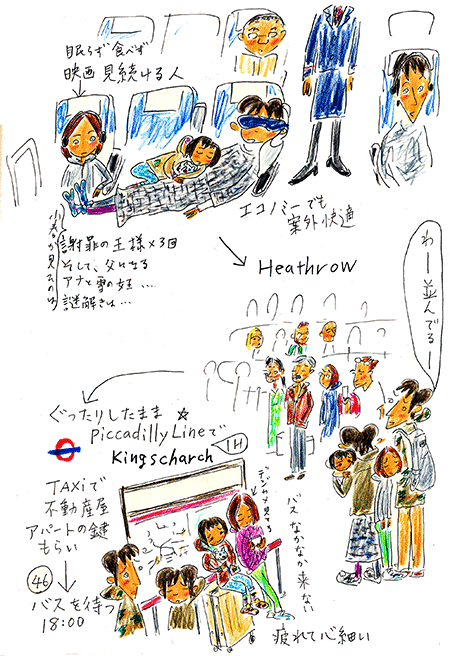 眠らず食べず
映画見続ける人
エコノミーでも
案外快適
謝罪の王様×3回
そして、父になる
アナと雪の女王…
謎解きは…
Heathrow
わー並んでるー
ぐったりしたまま
Piccadilly Lineで
Kingscharch
1H
TAXiで
不動産屋
アパートの鍵
もらい
46
バスを待つ
18:00
バスなかなか来ない
疲れて心細い